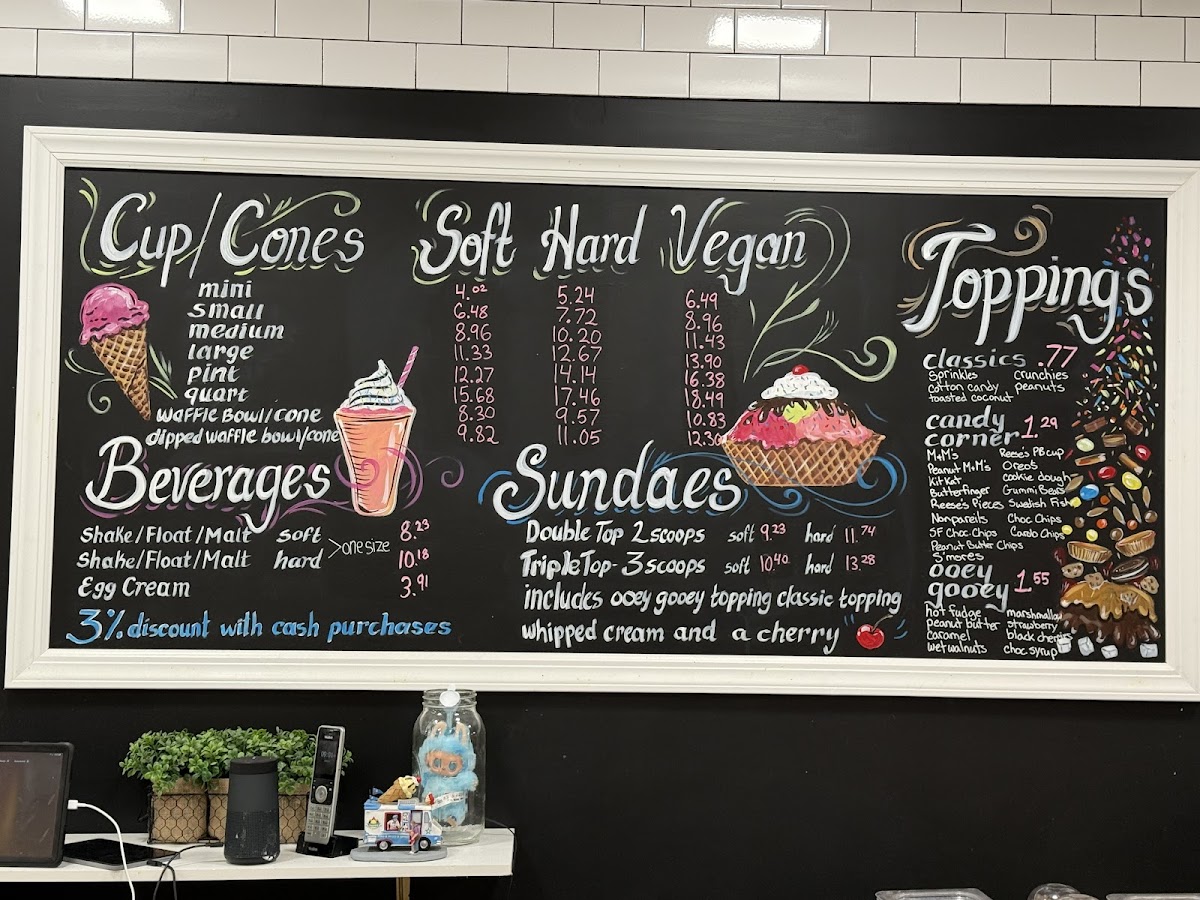 Cup/Cones Soft Hard Vegan
mini 4.02 5.24 6.49
small 6.48 7.72 8.96
medium 8.96 10.20 11.43
large 11.33 12.67 13.90
pint 12.27 14.14 16.38
quart 15.68 17.46 18.49
waffle Bowl/cone 8.30 9.57 10.83
dipped waffle bowl/cone 9.82 11.05 12.30
Beverages
Shake/Float/Malt soft 8.23
Shake/Float/Malt hard >one size 10.18
Egg Cream 3.91
3% discount with cash purchases
Sundaes
Double Top 2 scoops soft 9.23 hard 11.74
Triple Top - 3 scoops soft 10.40 hard 13.28
includes ooey gooey topping classic topping
whipped cream and a cherry
Toppings
classics .77
Sprinkles Crunchies
cotton candy peanuts
toasted coconut
candy
corner 1.29
M+M's Reese's PB cup
Peanut M+M's Oreos
Kit Kat cookie dough
Butterfinger Gummi Bears
Reese's Pieces Swedish Fish
Nonpareils Choc Chips
SF Choc Chips Carob Chips
Peanut Butter Chips
S'mores
ooey
gooey 1.55
hot fudge marshmallow
peanut butter strawberry
caramel black cherries
wet walnuts choc syrup